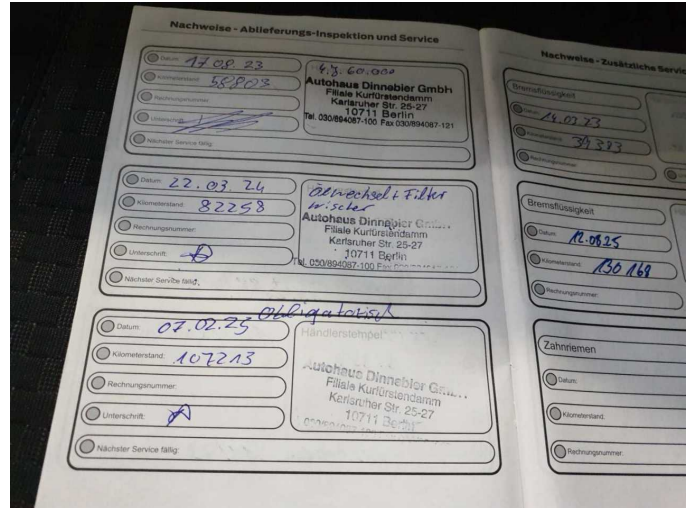 Nachweise - Ablieferungs-Inspektion und Service
Datum: 17.08.23
Kilometerstand: 58803
Rechnungsnummer:
Unterschrift:
Nächster Service fällig:
4.J. 60.000
Autohaus Dinnebier Gmbh
Filiale Kurfürstendamm
Karlsruher Str. 25-27
10711 Berlin
Tel. 030/894087-100 Fax 030/894087-121
Datum: 22.03.24
Kilometerstand: 82258
Rechnungsnummer:
Unterschrift:
Nächster Service fällig:
Ölwechsel + Filter
Wischer
Autohaus Dinnebier
Filiale Kurfürstendamm
Karlsruher Str. 25-27
10711 Berlin
Obligatorisch
Datum: 07.02.25
Kilometerstand: 107213
Rechnungsnummer:
Unterschrift:
Nächster Service fällig:
Händlerstempel
Autohaus Dinnebier
Filiale Kurfürstendamm
Karlsruher Str. 25-27
10711 Berlin
Nachweise - Zusätzliche Servic
Bremsflüssigkeit
Datum: 14.03.23
Kilometerstand: 39383
Rechnungsnummer:
Bremsflüssigkeit
Datum: 12.08.25
Kilometerstand: 130168
Rechnungsnummer:
Zahnriemen
Datum:
Kilometerstand:
Rechnungsnummer: